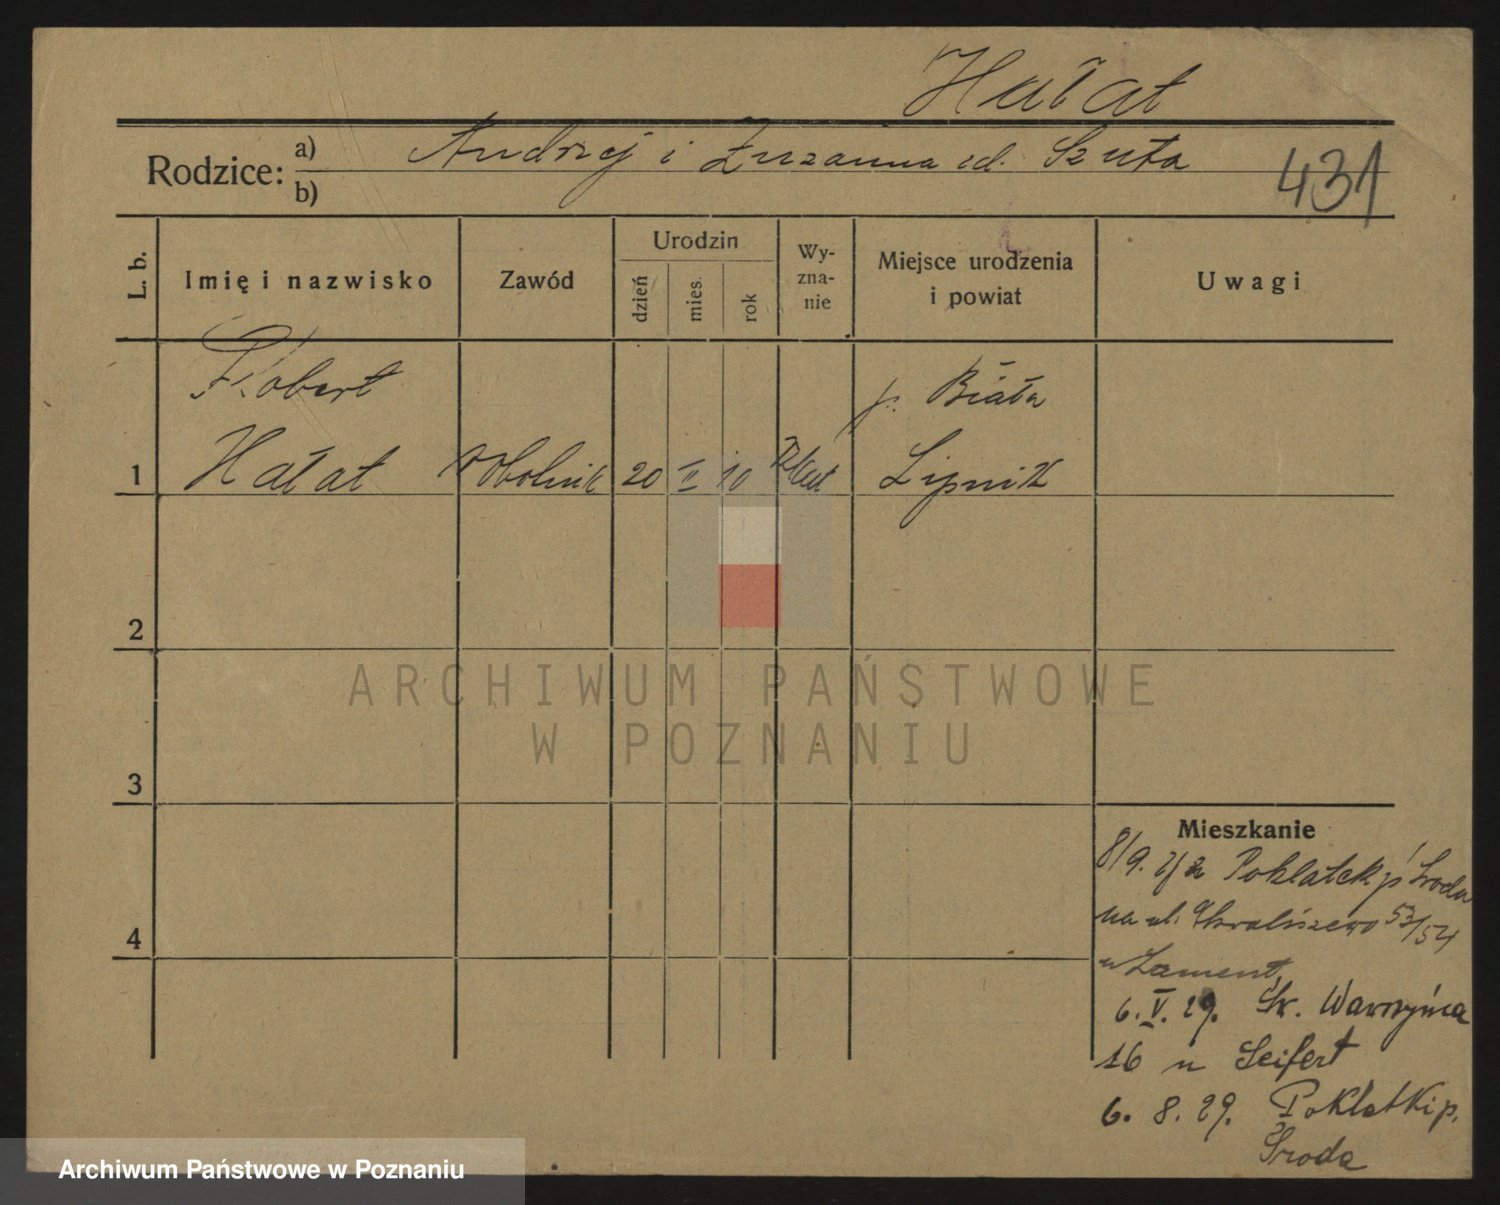 Hałat
Rodzice:
a) Andrzej i Zuzanna ud. Szuta
b)
431
L. b.
Imię i nazwisko
Zawód
Urodzin
dzień
mies.
rok
Wy-
zna-
nie
Miejsce urodzenia
i powiat
Uwagi
Robert
p. Biała
1 Hałat robotnik 20 II 10 Lipnik
2
3
4
Mieszkanie
8/9. Poklatek p Środa
na ul. 53/54
u Zament,
6. V. 29. Św. Wawrzyńca
16 u Seifert
6. 8. 29. Poklatki p.
Środa
ARCHIWUM PAŃSTWOWE
W POZNANIU
Archiwum Państwowe w Poznaniu